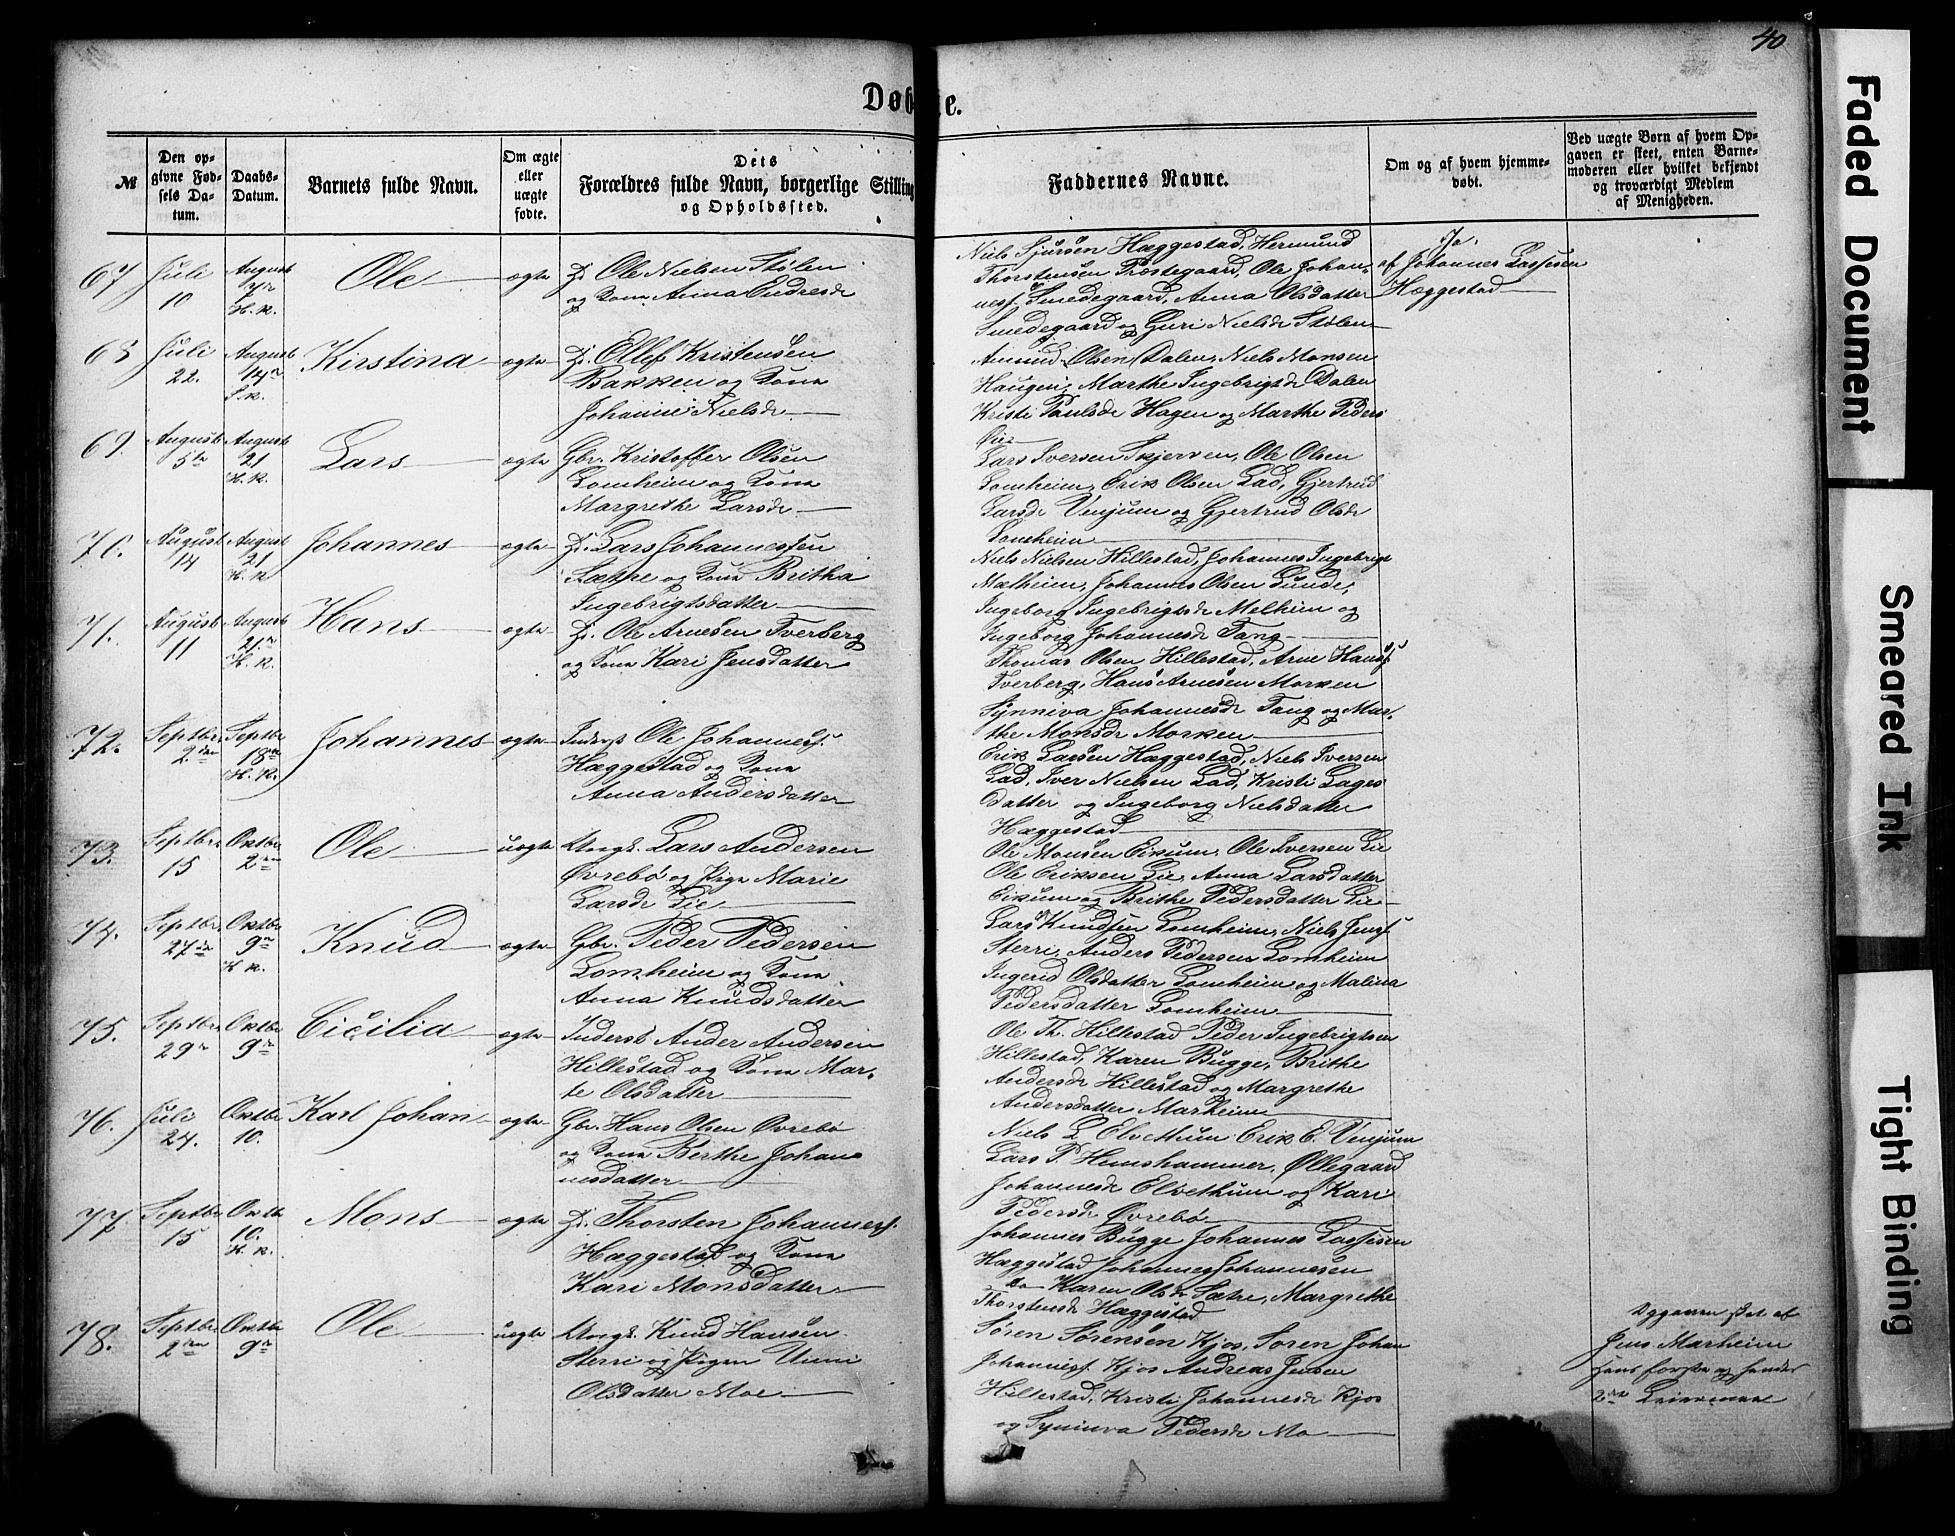 40
Døbte.
№
Den opgivne Fødsels Datum.
Daabs-Datum.
Barnets fulde Navn.
Om ægte eller uægte fødte.
Dets Forældres fulde Navn, borgerlige Stilling og Opholdssted.
Faddernes Navne.
Om og af hvem hjemmedøbt.
Ved uægte Børn af hvem Opgaven er skeet, enten Barnemoderen eller hvilket bekjendt og troværdigt Medlem af Menigheden.
67 Juli 10 August 7de H.K. Ole ægte
G. Ole Nielsen Stølen
og Kone Anna Endresd
Niels Sjursen Hæggestad, Hermund
Thorstensen Præstegaard, Ole Johan
nesf. Smedegaard, Anna Olsdatter
Smedegaard og Guri Nielsd Stølen
Ja.
af Johannes Lassesen
Hæggestad
68 Juli 22. August 14de Kirstina ægte
Ellef Kristensen
Bakken og Kone
Johanne Nielsd
Amund Olsen Dalen, Niels Monsen
Haugen, Marthe Ingebrigtsd Dalen
Kristi Paulsd Hagen og Marthe Peders
69. August 5te August 21 H.K. Lars ægte
Gbr. Kristoffer Olsen
Lomheim og Kone
Margrethe Larsd
Lars Iversen Skjerven, Ole Olsen
Lomheim, Erik Olsen Lad, Gjertrud
Larsd Venjum og Gjertrud Olsd
Lomheim
70. August 14 August 21 H.K. Johannes ægte
Lars Johannessen
Sætre og Kone Britha
Ingebrigtsdatter
Niels Nielsen Hillestad, Johannes Ingebrigt
Mælheim, Johannes Olsen Lunde,
Ingeborg Ingebrigtsd Melheim og
Ingeborg Johannesd Tang
71. August 11 August 21 H.K. Hans ægte
Ole Arnesen Tverberg
og Kone Kari Jensdatter
Thomas Olsen Hillestad, Arne Hansf
Tverberg, Hans Arnesen Morken
Synniva Johannesd Tang og Mar-
the Monsd Morken
72. Septbr. 2den Septbr 18de H.K. Johannes ægte
Inderst Ole Johannesf.
Hæggestad og Kone
Anna Andersdatter
Erik Larsen Hæggestad, Niels Iversen
Lad, Iver Nielsen Lad, Kristi Lages
datter og Ingeborg Nielsdatter
Hæggestad
73. Septbr. 15 Oktbr 2den Ole uægte
Ungk. Lars Andersen
Øvrebø og Pige Marie
Larsd Lie
Ole Monsen Eikum, Ole Iversen Lie
Ole Eriksen Lie, Anna Larsdatter
Eikum og Brithe Pedersdatter Lie
74. Septbr. 27de Oktbr 9de H.K. Knud ægte
Gbr. Peder Pedersen
Lomheim og Kone
Anna Knudsdatter
Lars Knudsen Lomheim, Niels Jensf
Sterri, Anders Pedersen Lomheim
Ingerid Olsdatter Lomheim og Malina
Pedersdatter Lomheim
75. Septbr. 29 Oktbr 9de Cicilia ægte
Inderst Ander Andersen
Hillestad og Kone Mar-
te Olsdatter
Ole Th. Hillestad Peder Ingebrigtsen
Hillestad, Karen Bugge, Brithe
Andersd Hillestad og Margrethe
Andersdatter Marheim
76. Juli 24. Oktbr 10. Karl Johan ægte
Gbr. Hans Olsen Øvrebø
og Kone Berthe Johan
nesdatter
Niels L Elvethum Erik E. Venjum
Lars P. Hemshammer, Øllegaard
Johannesd Elvethum og Kari
Pedersd Øvrebø
77 Septbr. 15 Oktbr 10. H.K. Mons ægte
Thorsten Johannesf.
Hæggestad og Kone
Kari Monsdatter
Johannes Bugge Johannes Lassesen
Hæggestad Johannes Johannesen
do Karen Olsd Sætre, Margrethe
Thorstensd Hæggestad
78. Septbr. 2den Oktbr 9de Ole uægte
Ungk. Knud Hansen
Sterri og Pigen Unni
Olsdatter Moe
Søren Sørensen Kjos, Søren Johan
Johannesf. Kjos Andreas Jensen
Hillestad, Kristi Johannesd Kjos
og Synneva Pedersd Mo
Opgaven skeet af
Jens Marheim
Hans første og hendes
2det Leiermaal
Faded Document
Smeared Ink
Tight Binding